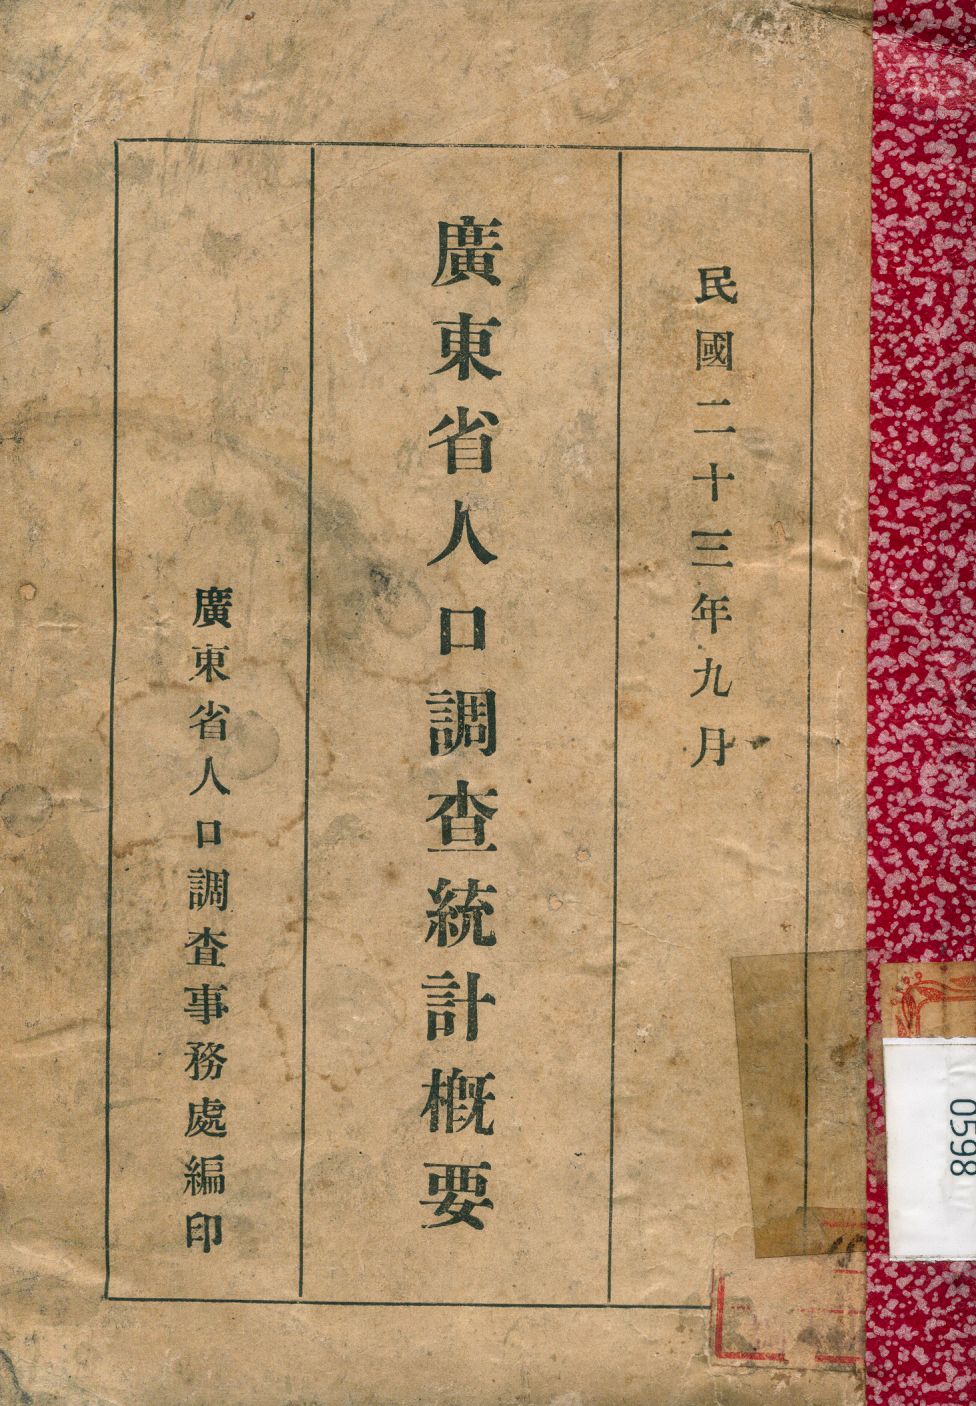 民國二十三年九月
廣東省人口調查統計概要
廣東省人口調查事務處編印
0598